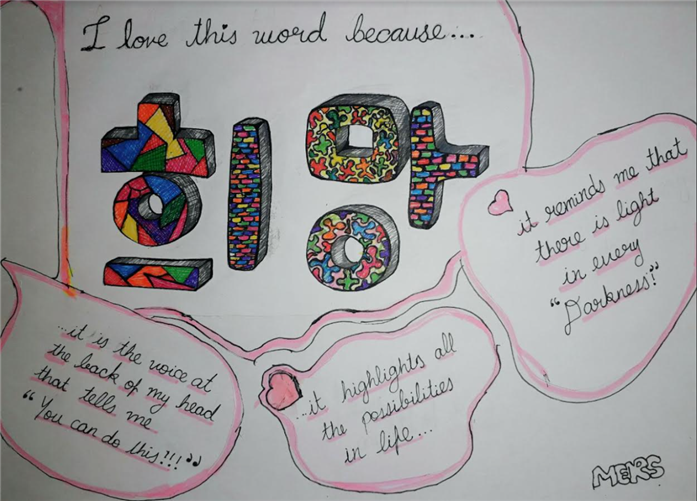 I love this word because...
희망
it reminds me that
there is light
in every
"Darkness!"
...it is the voice at
the back of my head
that tells me
"You can do this?!!"
...it highlights all
the possibilities
in life...
MERS